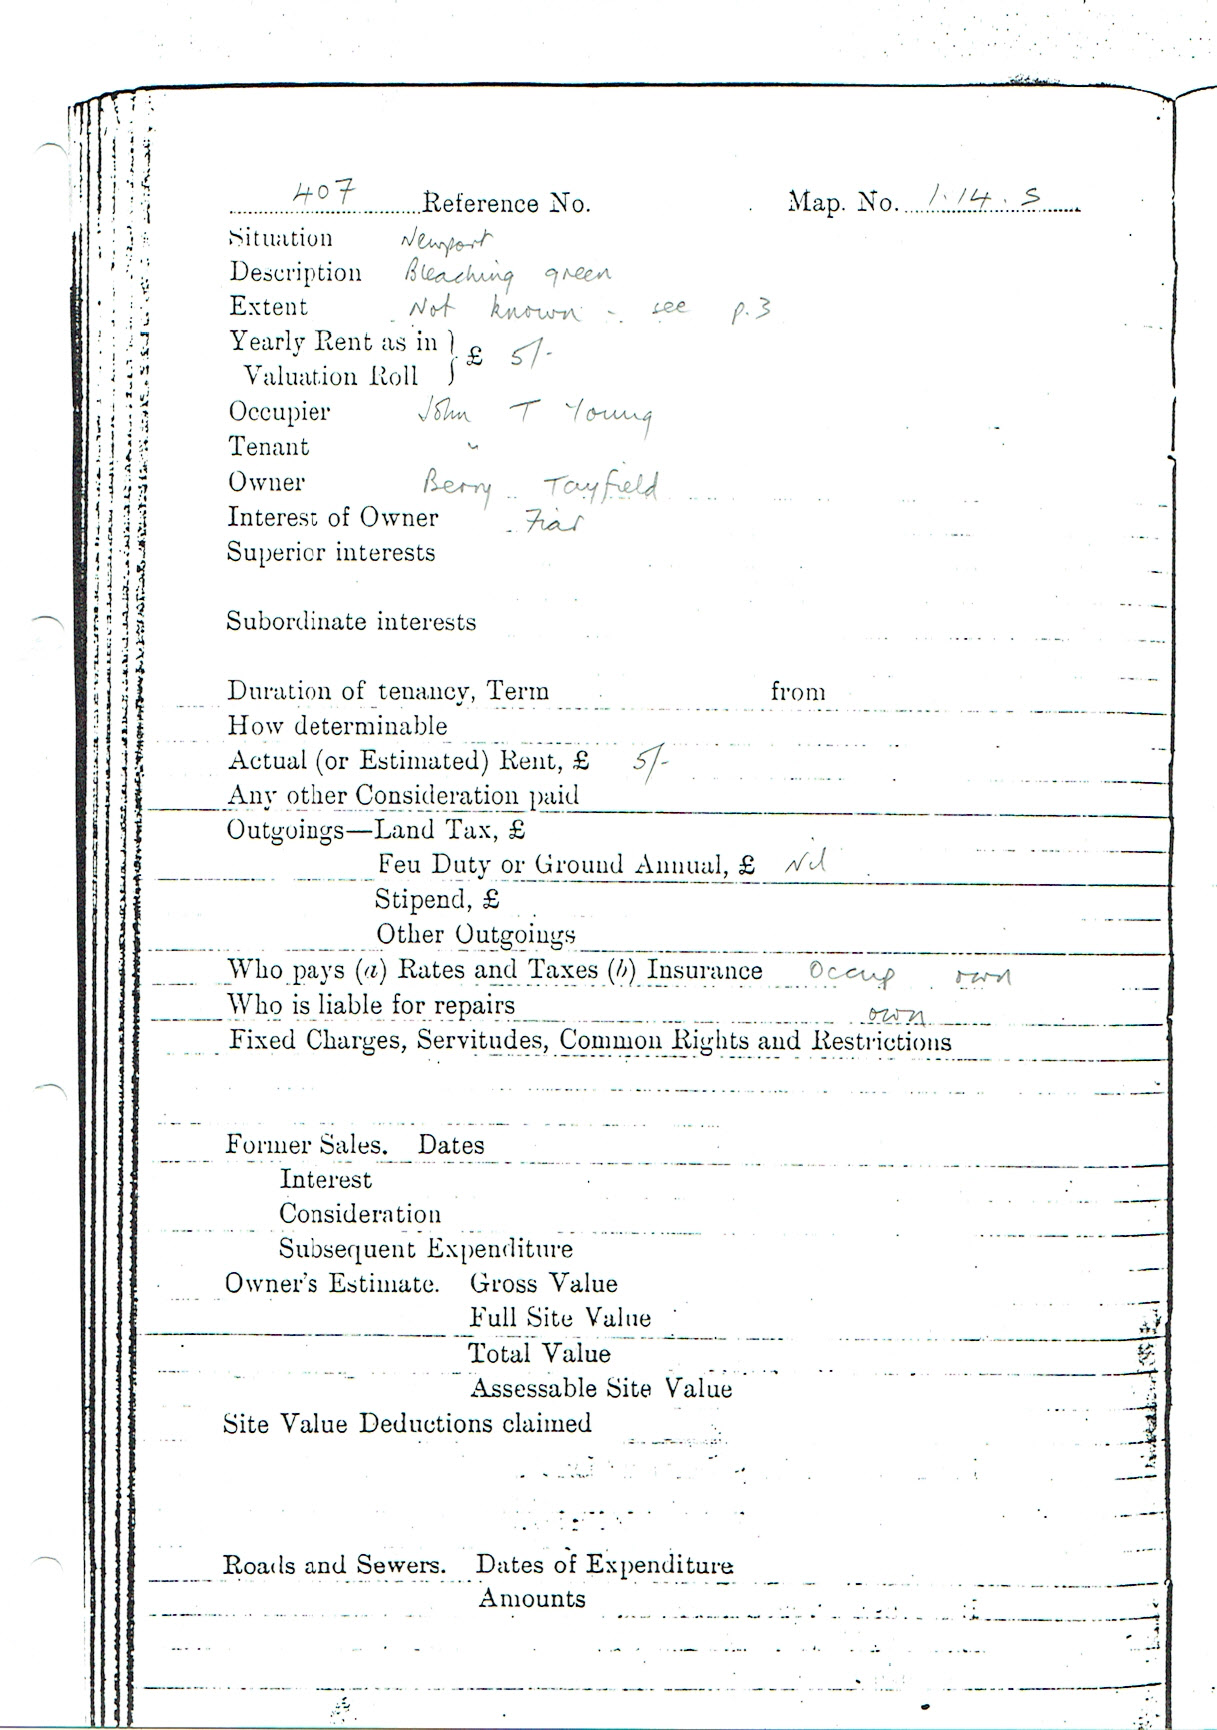 407 Reference No. Map. No. 1.14.S
Situation Newport
Description Bleaching green
Extent Not known - see p.3
Yearly Rent as in } £ 5/-
Valuation Roll
Occupier John T Young
Tenant "
Owner Berry Tayfield
Interest of Owner Fiar
Superior interests
Subordinate interests
Duration of tenancy, Term from
How determinable
Actual (or Estimated) Rent, £ 5/-
Any other Consideration paid
Outgoings—Land Tax, £
Feu Duty or Ground Annual, £ Nil
Stipend, £
Other Outgoings
Who pays (a) Rates and Taxes (b) Insurance Occup own
Who is liable for repairs own
Fixed Charges, Servitudes, Common Rights and Restrictions
Former Sales. Dates
Interest
Consideration
Subsequent Expenditure
Owner's Estimate. Gross Value
Full Site Value
Total Value
Assessable Site Value
Site Value Deductions claimed
Roads and Sewers. Dates of Expenditure
Amounts